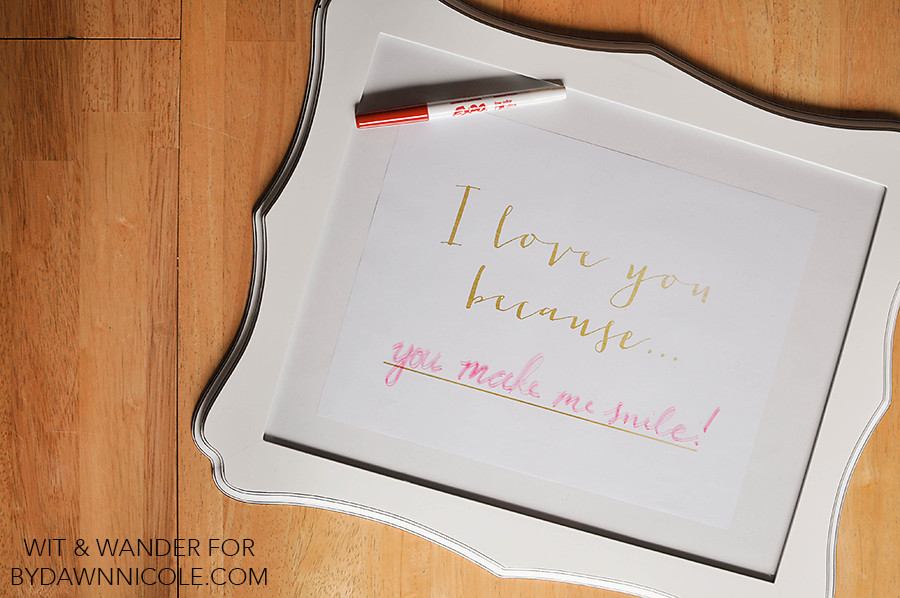 EXPO
I love you
because...
you make me smile!
WIT & WANDER FOR
BYDAWNNICOLE.COM